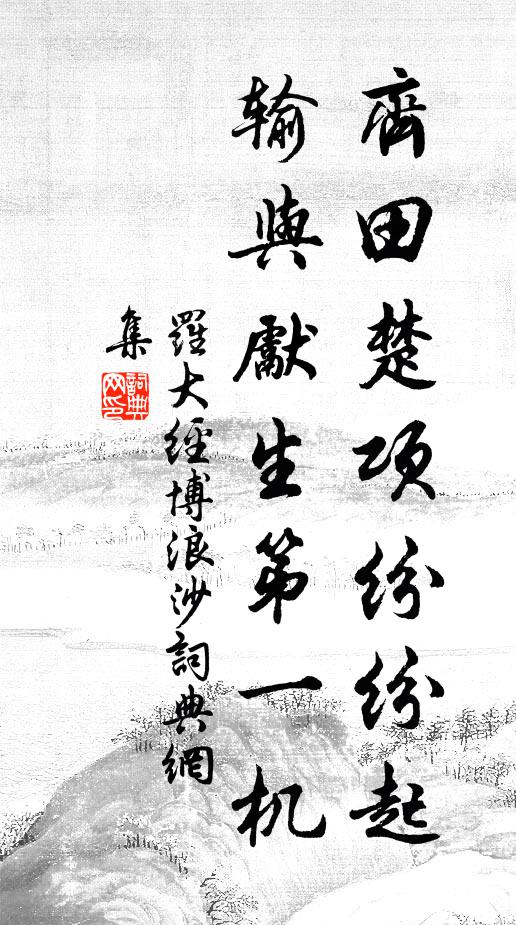 齊田楚項紛紛起
輸與獻生第一机
羅大經博浪沙詞典網
集
詞典網印